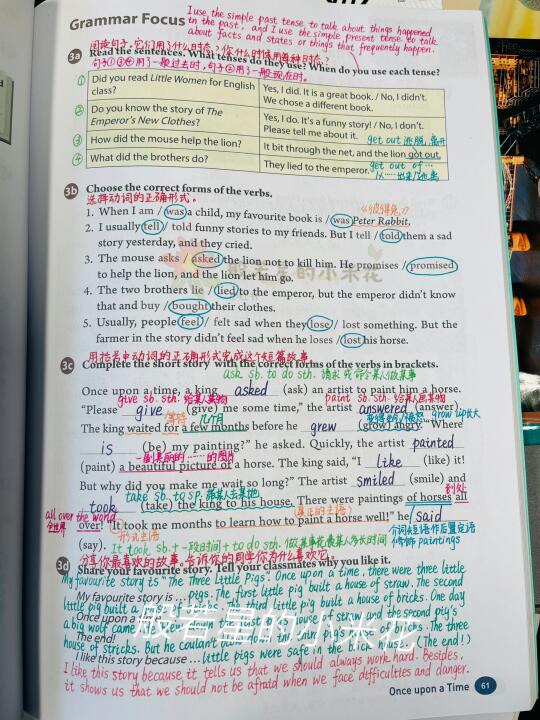 Grammar Focus
I use the simple past tense to talk about things happened
in the past, and I use the simple present tense to talk
about facts and states or things that frequently happen.
阅读句子。它们用了什么时态？你什么时候用每种时态？
3a Read the sentences. What tenses do they use? When do you use each tense?
句子①③④用了一般过去时，句子②用了一般现在时。
① Did you read Little Women for English class? Yes, I did. It is a great book. / No, I didn't. We chose a different book.
② Do you know the story of The Emperor's New Clothes? Yes, I do. It's a funny story! / No, I don't. Please tell me about it.
get out 逃脱，离开
③ How did the mouse help the lion? It bit through the net, and the lion got out.
get out of …
④ What did the brothers do? They lied to the emperor.
从……出来/逃离
3b Choose the correct forms of the verbs.
选择动词的正确形式。
《彼得兔》
1. When I am / was a child, my favourite book is / was Peter Rabbit.
2. I usually tell / told funny stories to my friends. But I tell / told them a sad
story yesterday, and they cried.
3. The mouse asks / asked the lion not to kill him. He promises / promised
to help the lion, and the lion let him go.
4. The two brothers lie / lied to the emperor, but the emperor didn't know
that and buy / bought their clothes.
5. Usually, people feel / felt sad when they lose / lost something. But the
farmer in the story didn't feel sad when he loses / lost his horse.
用括号中动词的正确形式完成这个短篇故事。
3c Complete the short story with the correct forms of the verbs in brackets.
ask sb. to do sth. 请求或命令某人做某事
Once upon a time, a king asked (ask) an artist to paint him a horse.
give sb. sth. 给某人某物 paint sb. sth. 给某人画某物
"Please give (give) me some time," the artist answered (answer).
等待 几个月 grow up 长大
The king waited for a few months before he grew (grow) angry. "Where
is (be) my painting?" he asked. Quickly, the artist painted
一副美丽的……的图片
(paint) a beautiful picture of a horse. The king said, "I like (like) it!
But why did you make me wait so long?" The artist smiled (smile) and
take sb. to sp. 带某人去某地 到处
took (take) the king to his house. There were paintings of horses all
all over the world 全世界
over! "It took me months to learn how to paint a horse well!" he said
形式主语
介词短语作后置定语
(say). It took sb + 一段时间 + to do sth. 做某事花费某人多长时间 修饰 paintings
分享你最喜欢的故事。告诉你的同学你为什么喜欢它。
3d Share your favourite story. Tell your classmates why you like it.
My favourite story is "The Three Little Pigs". Once upon a time, there were three little
My favourite story is …
pigs. The first little pig built a house of straw. The second
little pig built a house of sticks. The third little pig built a house of bricks. One day
Once upon a time
a big wolf came
The end!
I like this story because …
little pigs were safe in the brick house. (The end!)
I like this story because it tells us that we should always work hard. Besides,
it shows us that we should not be afraid when we face difficulties and danger.
般若里的小米花
Once upon a Time 61